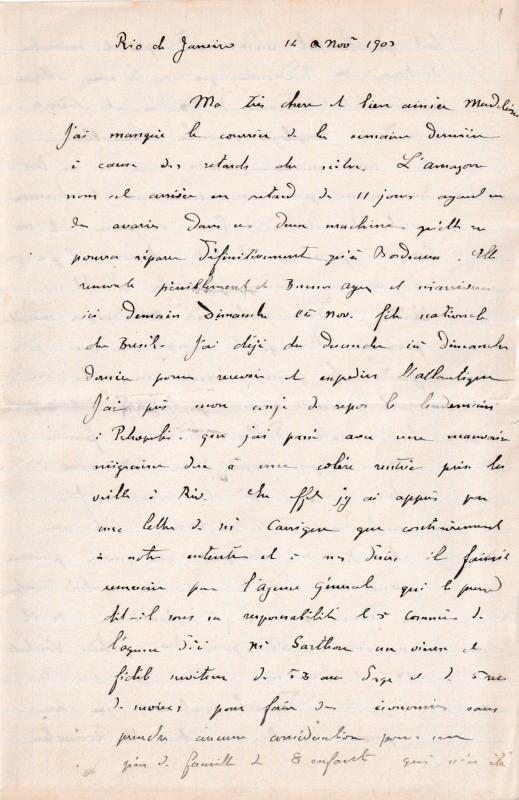 1
Rio de Janeiro 14 Nov 1903
Ma très chère et bien aimée Madeleine
J'ai manqué le courrier de la semaine dernière
à cause des retards du L'amazone
nous est arrivée en retard de 11 jours ayant eu
des avaries dans ses deux machines qu'elle ne
pourra réparer définitivement qu'à Bordeaux. Elle
remonte péniblement de Buenos ayres et n'arrivera
ici demain Dimanche 15 nov. fête nationale
du Brésil. J'ai déjà du descendre ici dimanche
dernier pour recevoir et expédier l'atlantique
J'ai pris mon congé de repos le lendemain
à Petropolis que j'ai passé avec une mauvaise
migraine due à une colère rentrée prise la
veille à Rio. En effet j'y ai appris par
une lettre de Mr que contrairement
à notre entente et à mes désirs il faisait
remercier par l'agence Générale qui le prend
dit-il sous sa responsabilité le 5 commis de
l'agence d'ici Mr un vieux et
fidèle serviteur de 53 ans d'age et de
de services pour faire des économies sans
prendre aucune considération pour un
père de famille de 8 enfants qui